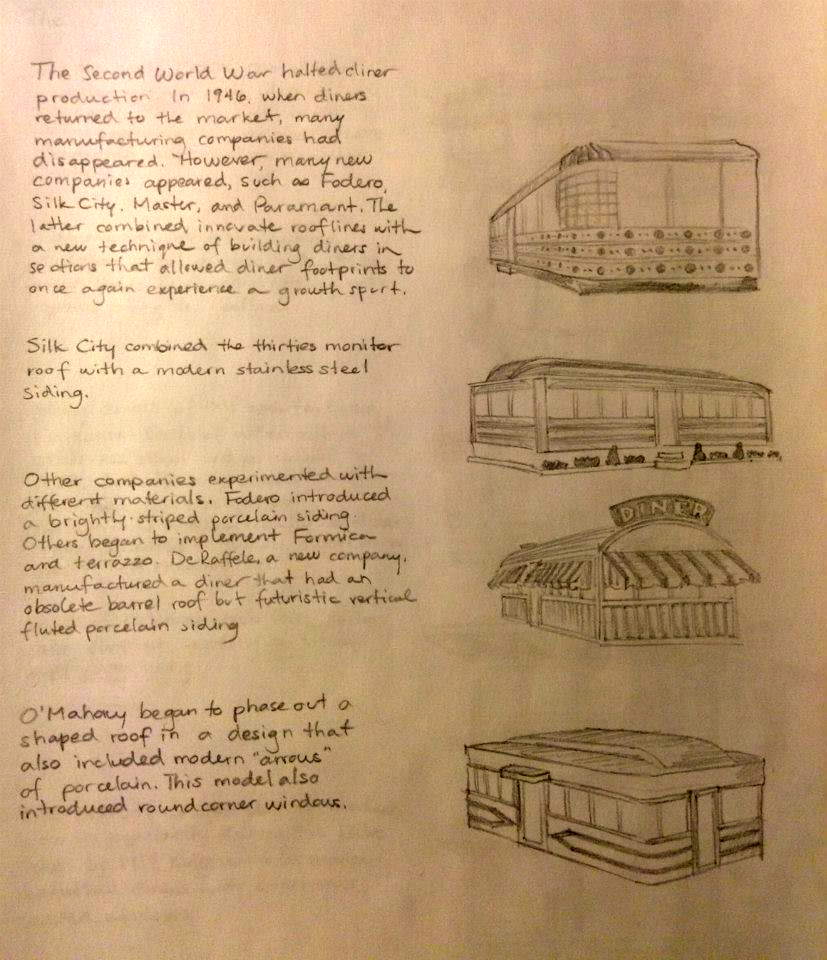 The Second World War halted diner
production In 1946, when diners
returned to the market, many
manufacturing companies had
disappeared. However, many new
companies appeared, such as Fodero,
Silk City, Master, and Paramant. The
latter combined innovate rooflines with
a new technique of building diners in
sections that allowed diner footprints to
once again experience a growth spurt.
Silk City combined the thirties monitor
roof with a modern stainless steel
siding.
Other companies experimented with
different materials. Fodero introduced
a brightly-striped porcelain siding.
Others began to implement Formica
and terrazzo. DeRaffele, a new company,
manufactured a diner that had an
obsolete barrel roof but futuristic vertical
fluted porcelain siding
DINER
O'Mahony began to phase out a
shaped roof in a design that
also included modern "arrows"
of porcelain. This model also
introduced round corner windows.